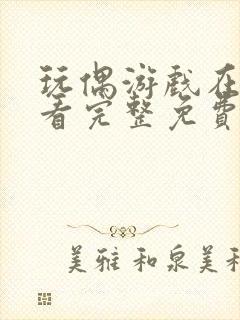 玩偶游戏在
看完整免费
美雅 和泉美和